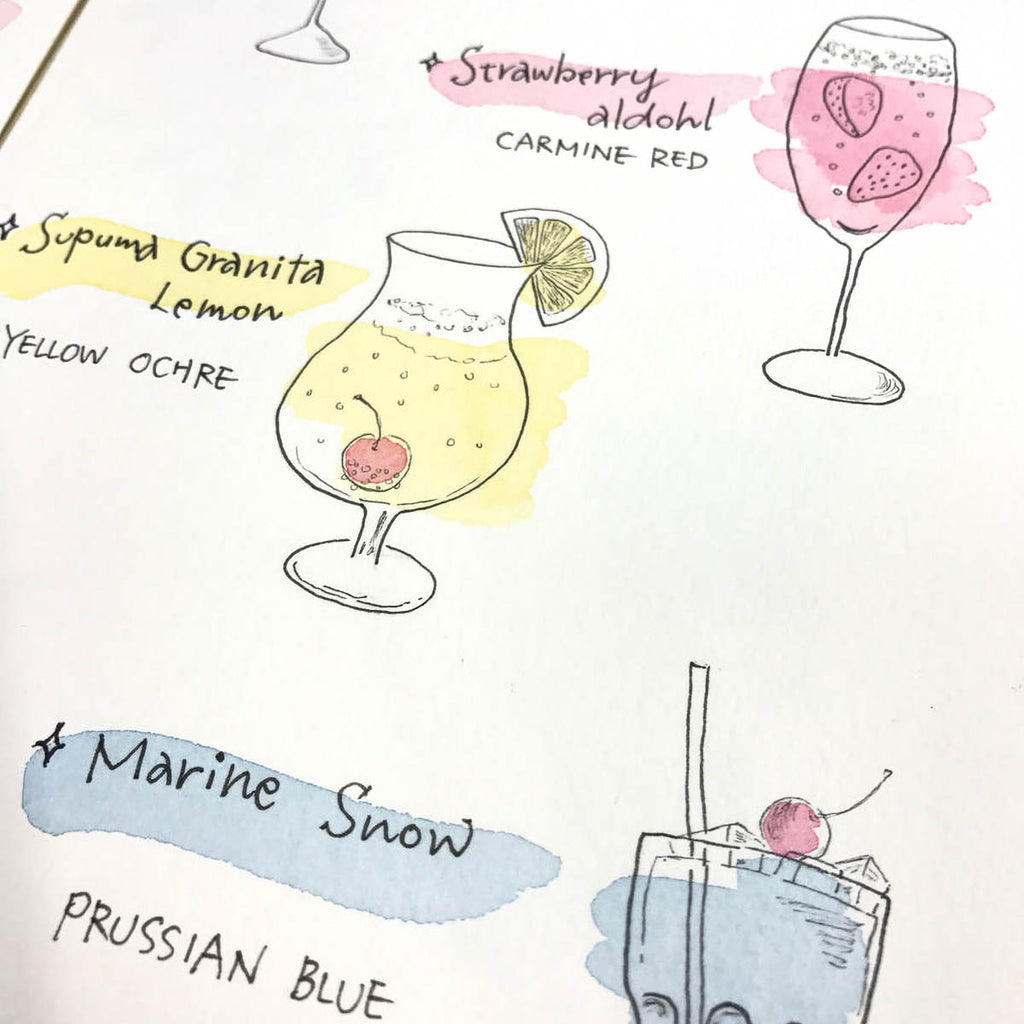 Strawberry
aldohl
CARMINE RED
Supuma Granita
Lemon
YELLOW OCHRE
Marine Snow
PRUSSIAN BLUE